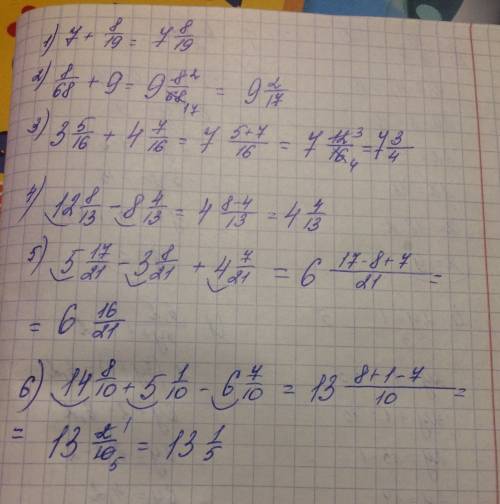 1) 7 + 8/19 = 7 8/19
2) 8/68 + 9 = 9 8²/68₁₇ = 9 2/17
3) 3 5/16 + 4 7/16 = 7 5+7/16 = 7 12³/16₄ = 7 3/4
4) 12 8/13 - 8 4/13 = 4 8-4/13 = 4 4/13
5) 5 17/21 - 3 8/21 + 4 7/21 = 6 17-8+7/21 =
= 6 16/21
6) 14 8/10 + 5 1/10 - 6 7/10 = 13 8+1-7/10 =
= 13 2¹/10₅ = 13 1/5